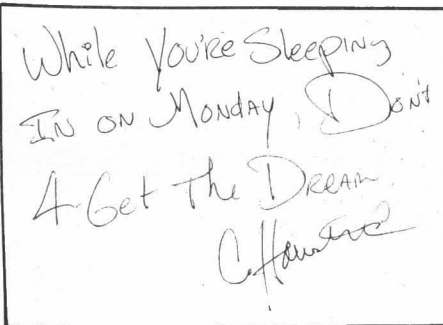 While You're Sleeping
In on Monday, Don't
4-Get The Dream